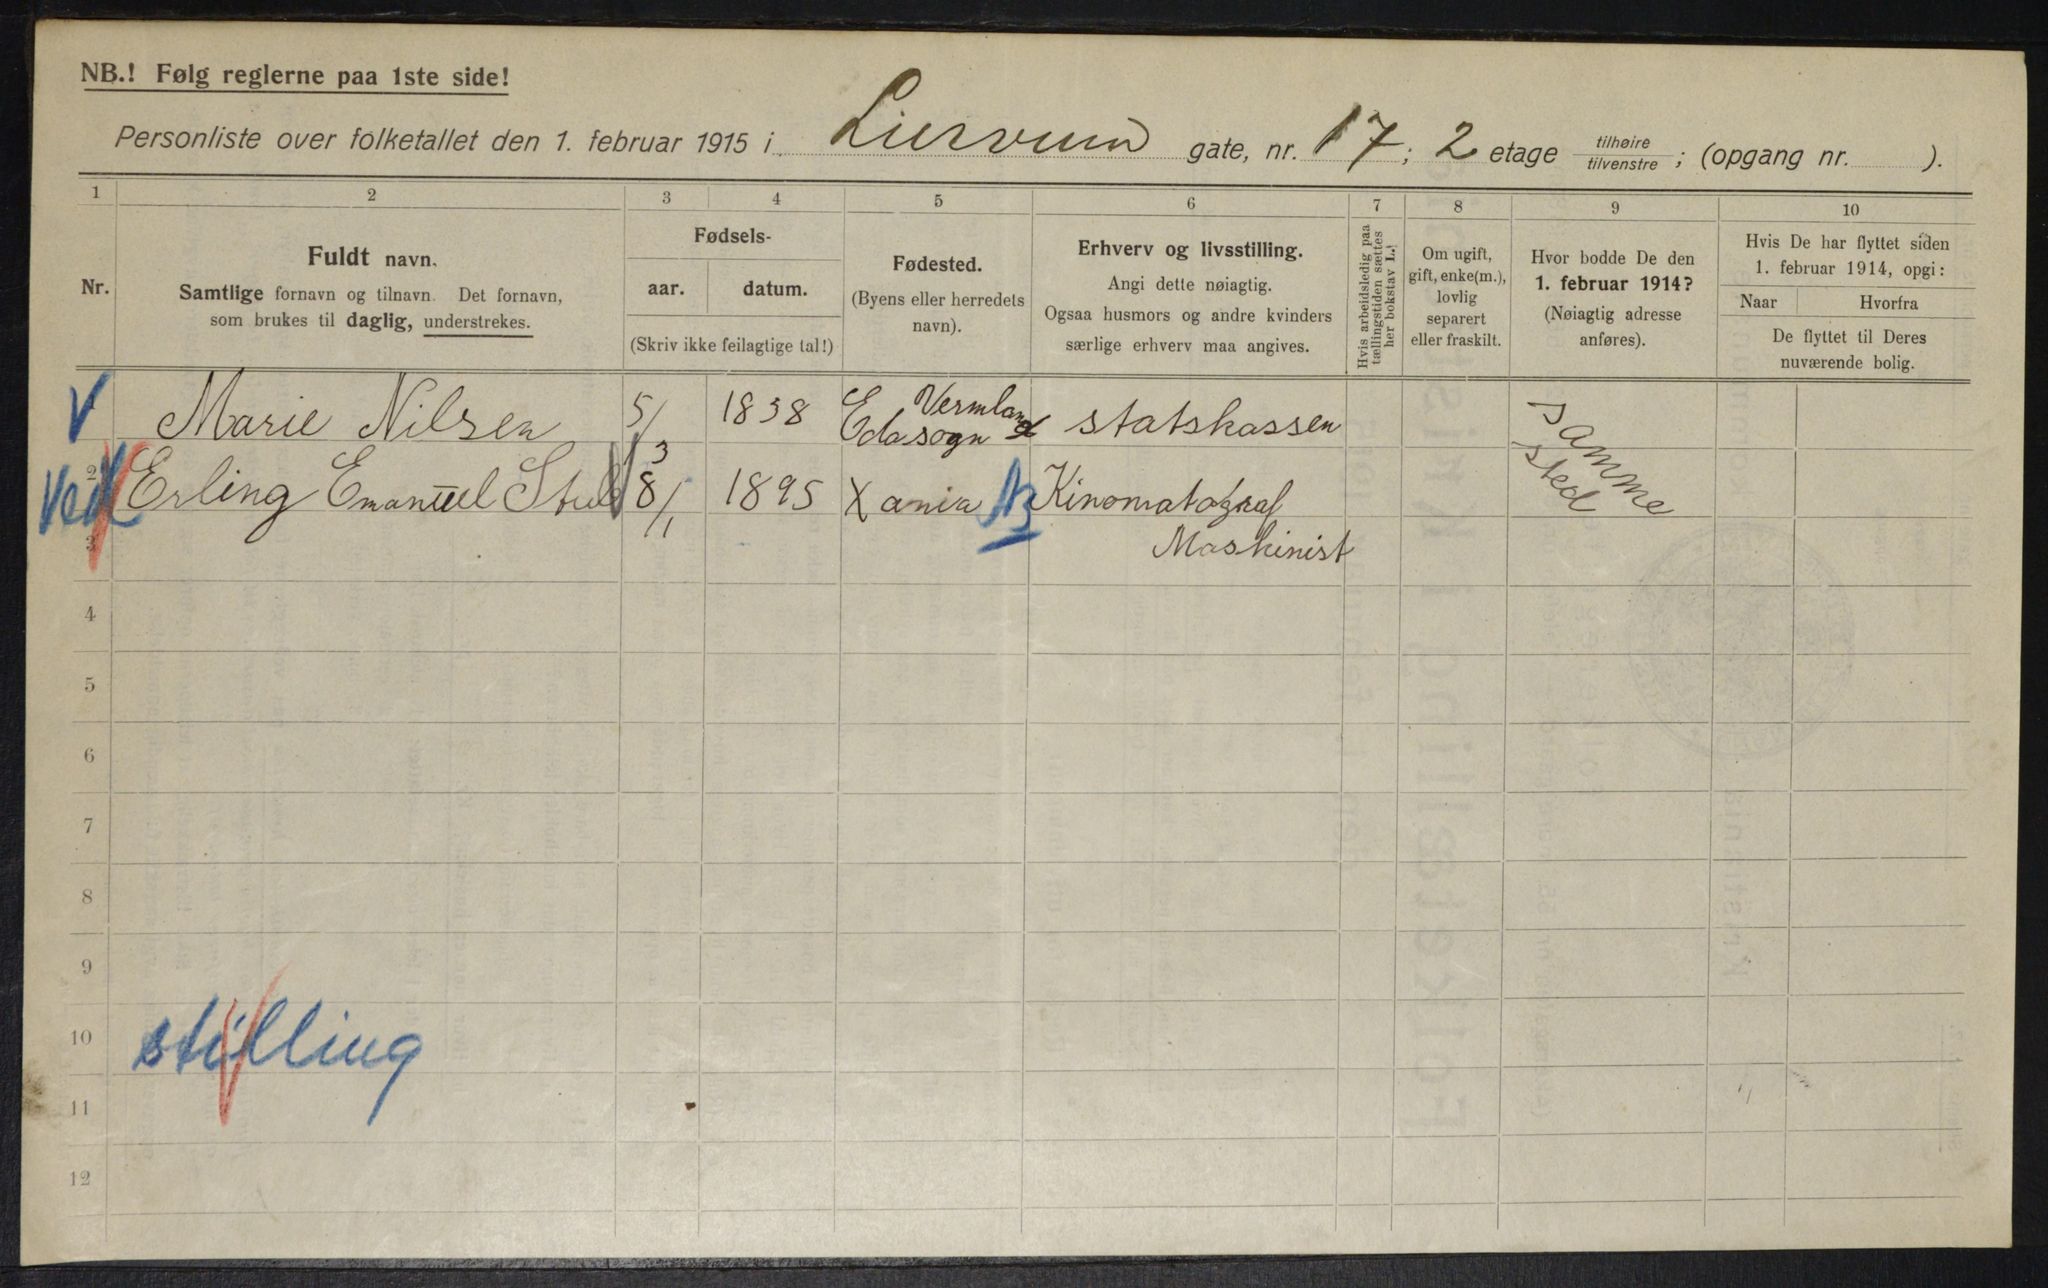 NB.! Følg reglerne paa 1ste side!
Personliste over folketallet den 1. februar 1915 i gate, nr. 17; 2 etage tilhøire tilvenstre; (opgang nr. ).
1 2 3 4 5 6 7 8 9 10
Nr.
Fuldt navn.
Samtlige fornavn og tilnavn. Det fornavn,
som brukes til daglig, understrekes.
Fødsels-
aar. datum.
(Skriv ikke feilagtige tal!)
Fødested.
(Byens eller herredets
navn).
Erhverv og livsstilling.
Angi dette nøiagtig.
Ogsaa husmors og andre kvinders
særlige erhverv maa angives.
Hvis arbeidsledig paa
tællingstiden sættes
her bokstav L.!
Om ugift,
gift, enke(m.),
lovlig
separert
eller fraskilt.
Hvor bodde De den
1. februar 1914?
(Nøiagtig adresse
anføres).
Hvis De har flyttet siden
1. februar 1914, opgi:
Naar Hvorfra
De flyttet til Deres
nuværende bolig.
Marie Nilsen 5/3 1838 Vermland Eda sogn statskassen samme
2 Erling Emanuel 8/1 1895 Xania Kinomatograf sted
3 Maskinist
4
5
6
7
8
9
10 stilling
11
12